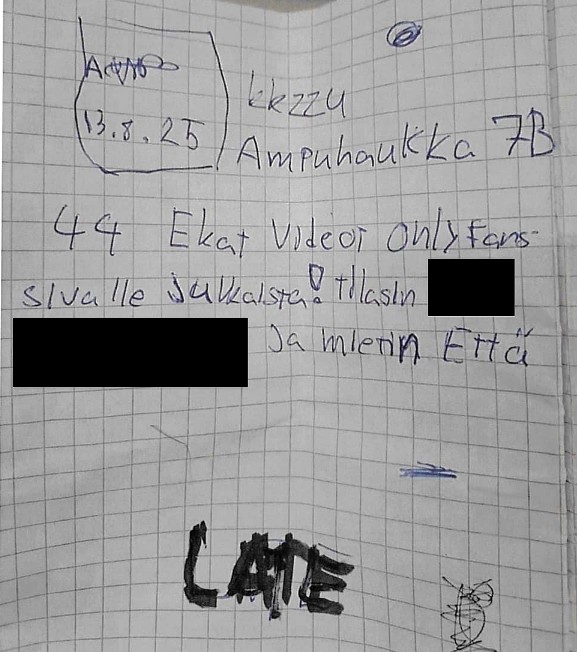 13.8.25
kkzzu
Ampuhaukka 7B
44 Ekat Videot Onlyfans-
sivalle Julkaista! tilasin
Ja mietin Että
LATE